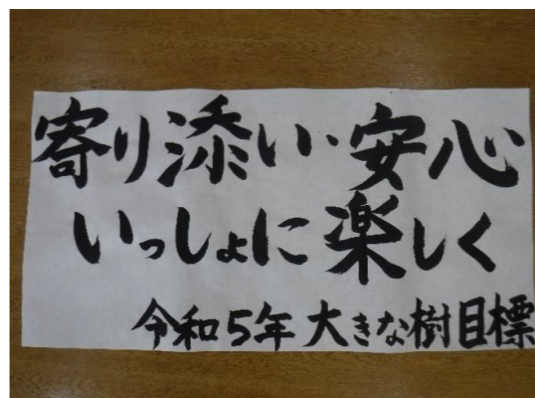 寄り添い・安心
いっしょに楽しく
令和5年大きな樹目標